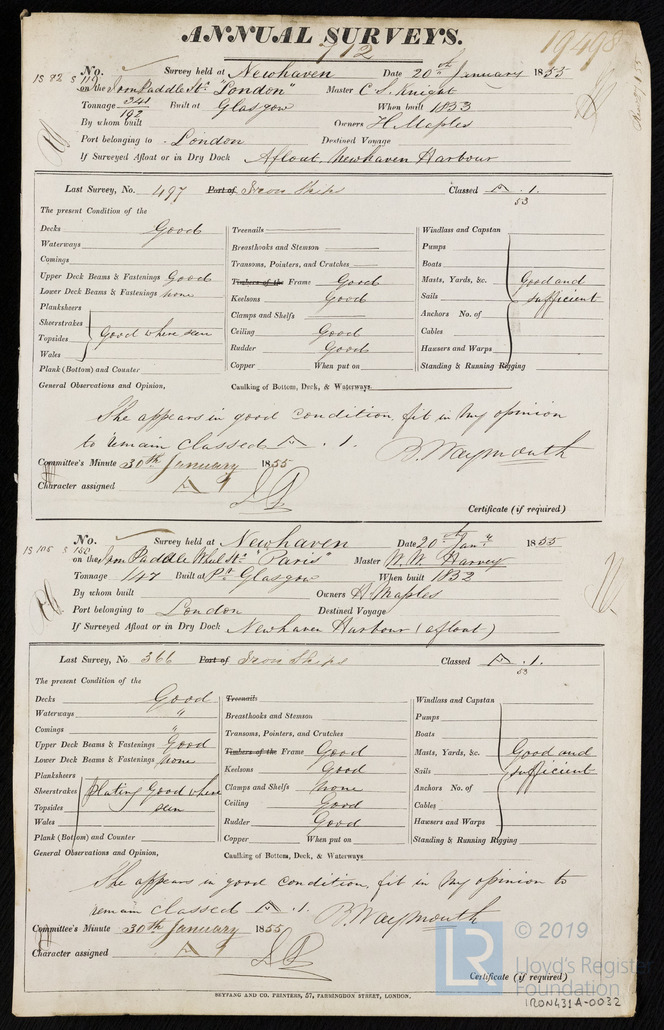 ANNUAL SURVEYS.
No. Survey held at Newhaven Date 20th January 1855
on the Iron Paddle St. "London" Master C S. Knight
Tonnage 241/192 Built at Glasgow When built 1833
By whom built Owners H. Maples
Port belonging to London Destined Voyage
If Surveyed Afloat or in Dry Dock Afloat. Newhaven Harbour
Last Survey, No. 497 Port of Iron Ships Classed A .1.
53
The present Condition of the
Decks Good Treenails Windlass and Capstan
Waterways Breasthooks and Stemson Pumps
Comings Transoms, Pointers, and Crutches Boats
Upper Deck Beams & Fastenings Good Timbers of the Frame Good Masts, Yards, &c. Good and
Lower Deck Beams & Fastenings none Keelsons Good Sails sufficient
Planksheers Clamps and Shelfs Anchors No. of
Sheerstrakes Ceiling Good Cables
Topsides Good where seen Rudder Good Hawsers and Warps
Wales Copper When put on Standing & Running Rigging
Plank (Bottom) and Counter
General Observations and Opinion, Caulking of Bottom, Deck, & Waterways
She appears in good condition, fit in my opinion
to remain classed A . 1. B. Waymouth
Committee's Minute 30th January 1855
Character assigned A 1
Certificate (if required)
No. Survey held at Newhaven Date 20th Jany 1855
on the Iron Paddle Wheel St. "Paris" Master W. W. Harvey
Tonnage 147 Built at Pt Glasgow When built 1832
By whom built Owners H. Maples
Port belonging to London Destined Voyage
If Surveyed Afloat or in Dry Dock Newhaven Harbour (afloat)
Last Survey, No 366 Port of Iron Ships Classed A .1.
53
The present Condition of the
Decks Good Treenails Windlass and Capstan
Waterways " Breasthooks and Stemson Pumps
Comings " Transoms, Pointers, and Crutches Boats
Upper Deck Beams & Fastenings Good Timbers of the Frame Good Masts, Yards, &c. Good and
Lower Deck Beams & Fastenings none Keelsons Good Sails sufficient
Planksheers Clamps and Shelfs none Anchors No. of
Sheerstrakes Plating Good where Ceiling Good Cables
Topsides seen Rudder Good Hawsers and Warps
Wales Copper When put on Standing & Running Rigging
Plank (Bottom) and Counter
General Observations and Opinion, Caulking of Bottom, Deck, & Waterways
She appears in good condition, fit in my opinion to
remain classed A .1. B. Waymouth
Committee's Minute 30th January 1855
Character assigned A 1
Certificate (if required)
SEYFANG AND CO. PRINTERS, 57, FARRINGDON STREET, LONDON.
© 2019
LR
Lloyd's Register
Foundation
IRON431A-0032